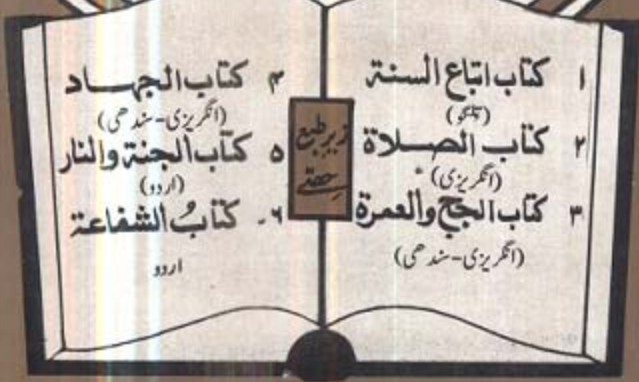 ۱ کتاب اتباع السنة
(تلگو)
۲ کتاب الصلاة
(انگریزی)
۳ کتاب الحج والعمرة
(انگریزی-سندھی)
زیر طبع
حصے
۴ کتاب الجهاد
(انگریزی-سندھی)
۵ کتاب الجنة والنار
(اردو)
۶- کتابُ الشفاعة
اردو